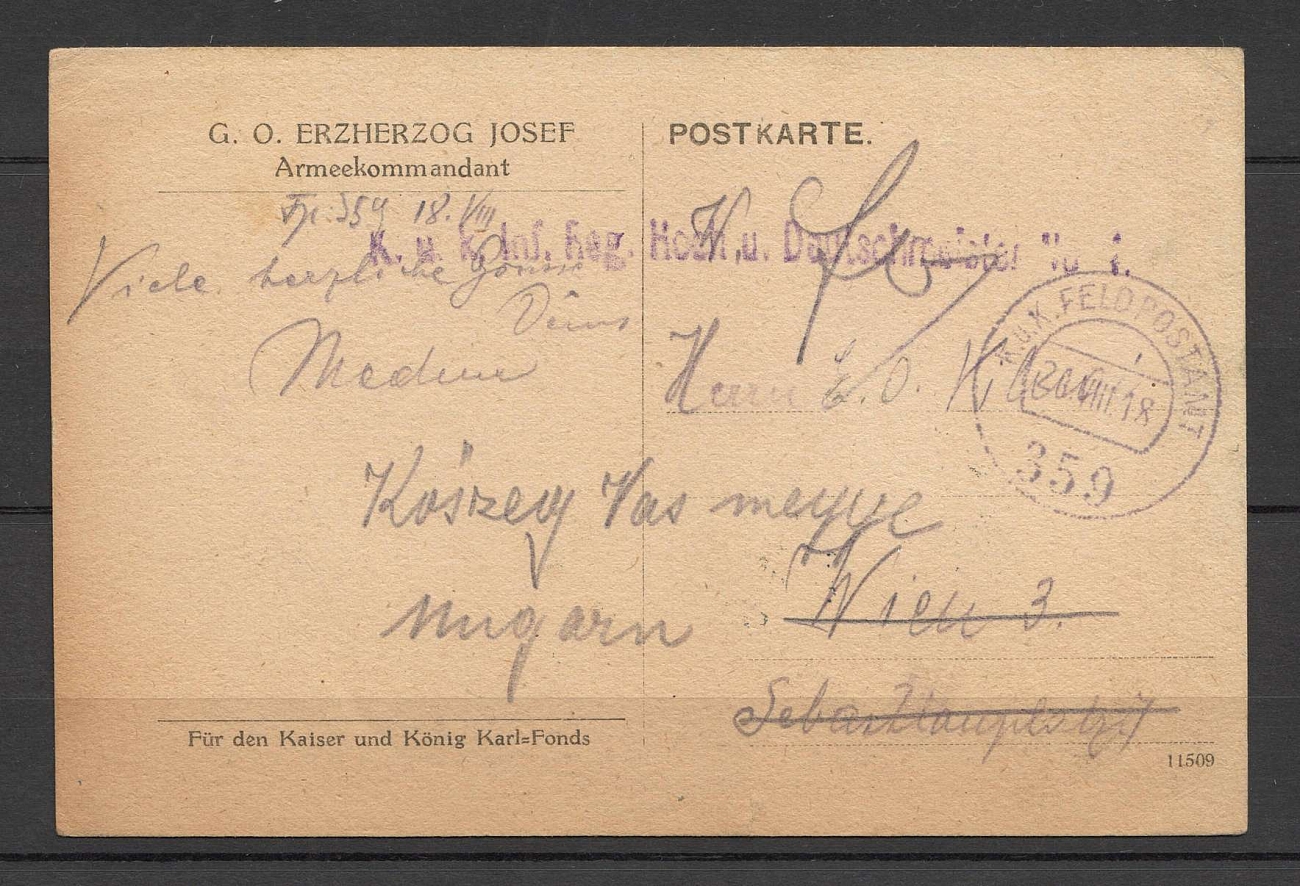 G. O. ERZHERZOG JOSEF
Armeekommandant
Fp. 359 18. VIII
Viele herzliche Grüsse
POSTKARTE.
K. u. k. Inf. Reg. Hoch u. Deutschmeister No 4.
K.U.K. FELDPOSTAMT
20.VIII.18
359
Herrn E. O.
Kőszeg Vas megye
Ungarn
Wien 3.
Sebastianplatz 7
Für den Kaiser und König Karl=Fonds
11509